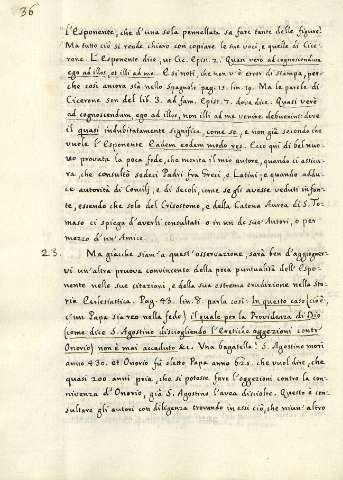 36
l'Esponente, che d'una sola pennellata sa fare tante belle figure!
Ma tutto ciò si rende chiaro con copiare le sue voci, e quelle di Cice-
rone. L'Esponente dice, ut Cic. Epist. 7. Quasi verò ad cognoscendum
ego ad illos, et illi ad me. E si noti, che non v'è error di stampa, per-
che così ancora stà nello Spagnuolo pag. 15. lin. 19. Ma le parole di
Cicerone son del lib. 3. ad fam. Epist. 7. dove dice: Quasi verò
ad cognoscendum ego ad illos, non illi ad me venire debuerint: dove
il quasi indubitatamente significa, come se, e non già secondo che
vuole l'Esponente Eadem eodem modo res. Ecco qui di bel nuo-
vo provata la poca fede, che merita il mio autore, quando ci assicu-
ra, che consultò sedeci Padri fra Greci, e Latini; e quando addu-
ce autorità di Concilj, e di secoli, come se gli avesse veduti in fon-
te, essendo che solo del Crisostomo, e della Catena Aurea di S. To-
maso ci spiega d'averli consultati o in un de suo' Autori, o per
mezzo d'un Amico.
23. Ma giacche siam'a quest'osservazione, sarà ben d'aggiogner-
vi un'altra pruova convincente della poca puntualità dell'Espo-
nente nelle sue citazioni, e della sua estrema erudizione nella Sto-
ria Ecclesiastica. Pag. 43. lin. 8. parla così: In questo caso (cioè,
c'un Papa sia reo nella fede) il quale per la Providenza di Dio
(come dice S. Agostino disciogliendo l'Eretiche oggezioni contr'
Onorio) non è mai accaduto &c. Una bagatella! S. Agostino morì
anno 430. et Onorio fù eletto Papa anno 625. che vuol dire, che
quasi 200 anni pria, che si potesse fare l'oggezioni contro la con-
nivenza d'Onorio, già S. Agostino l'avea disciolte. Questo è con-
sultare gli autori con diligenza trovando in essi ciò, che niun'altro